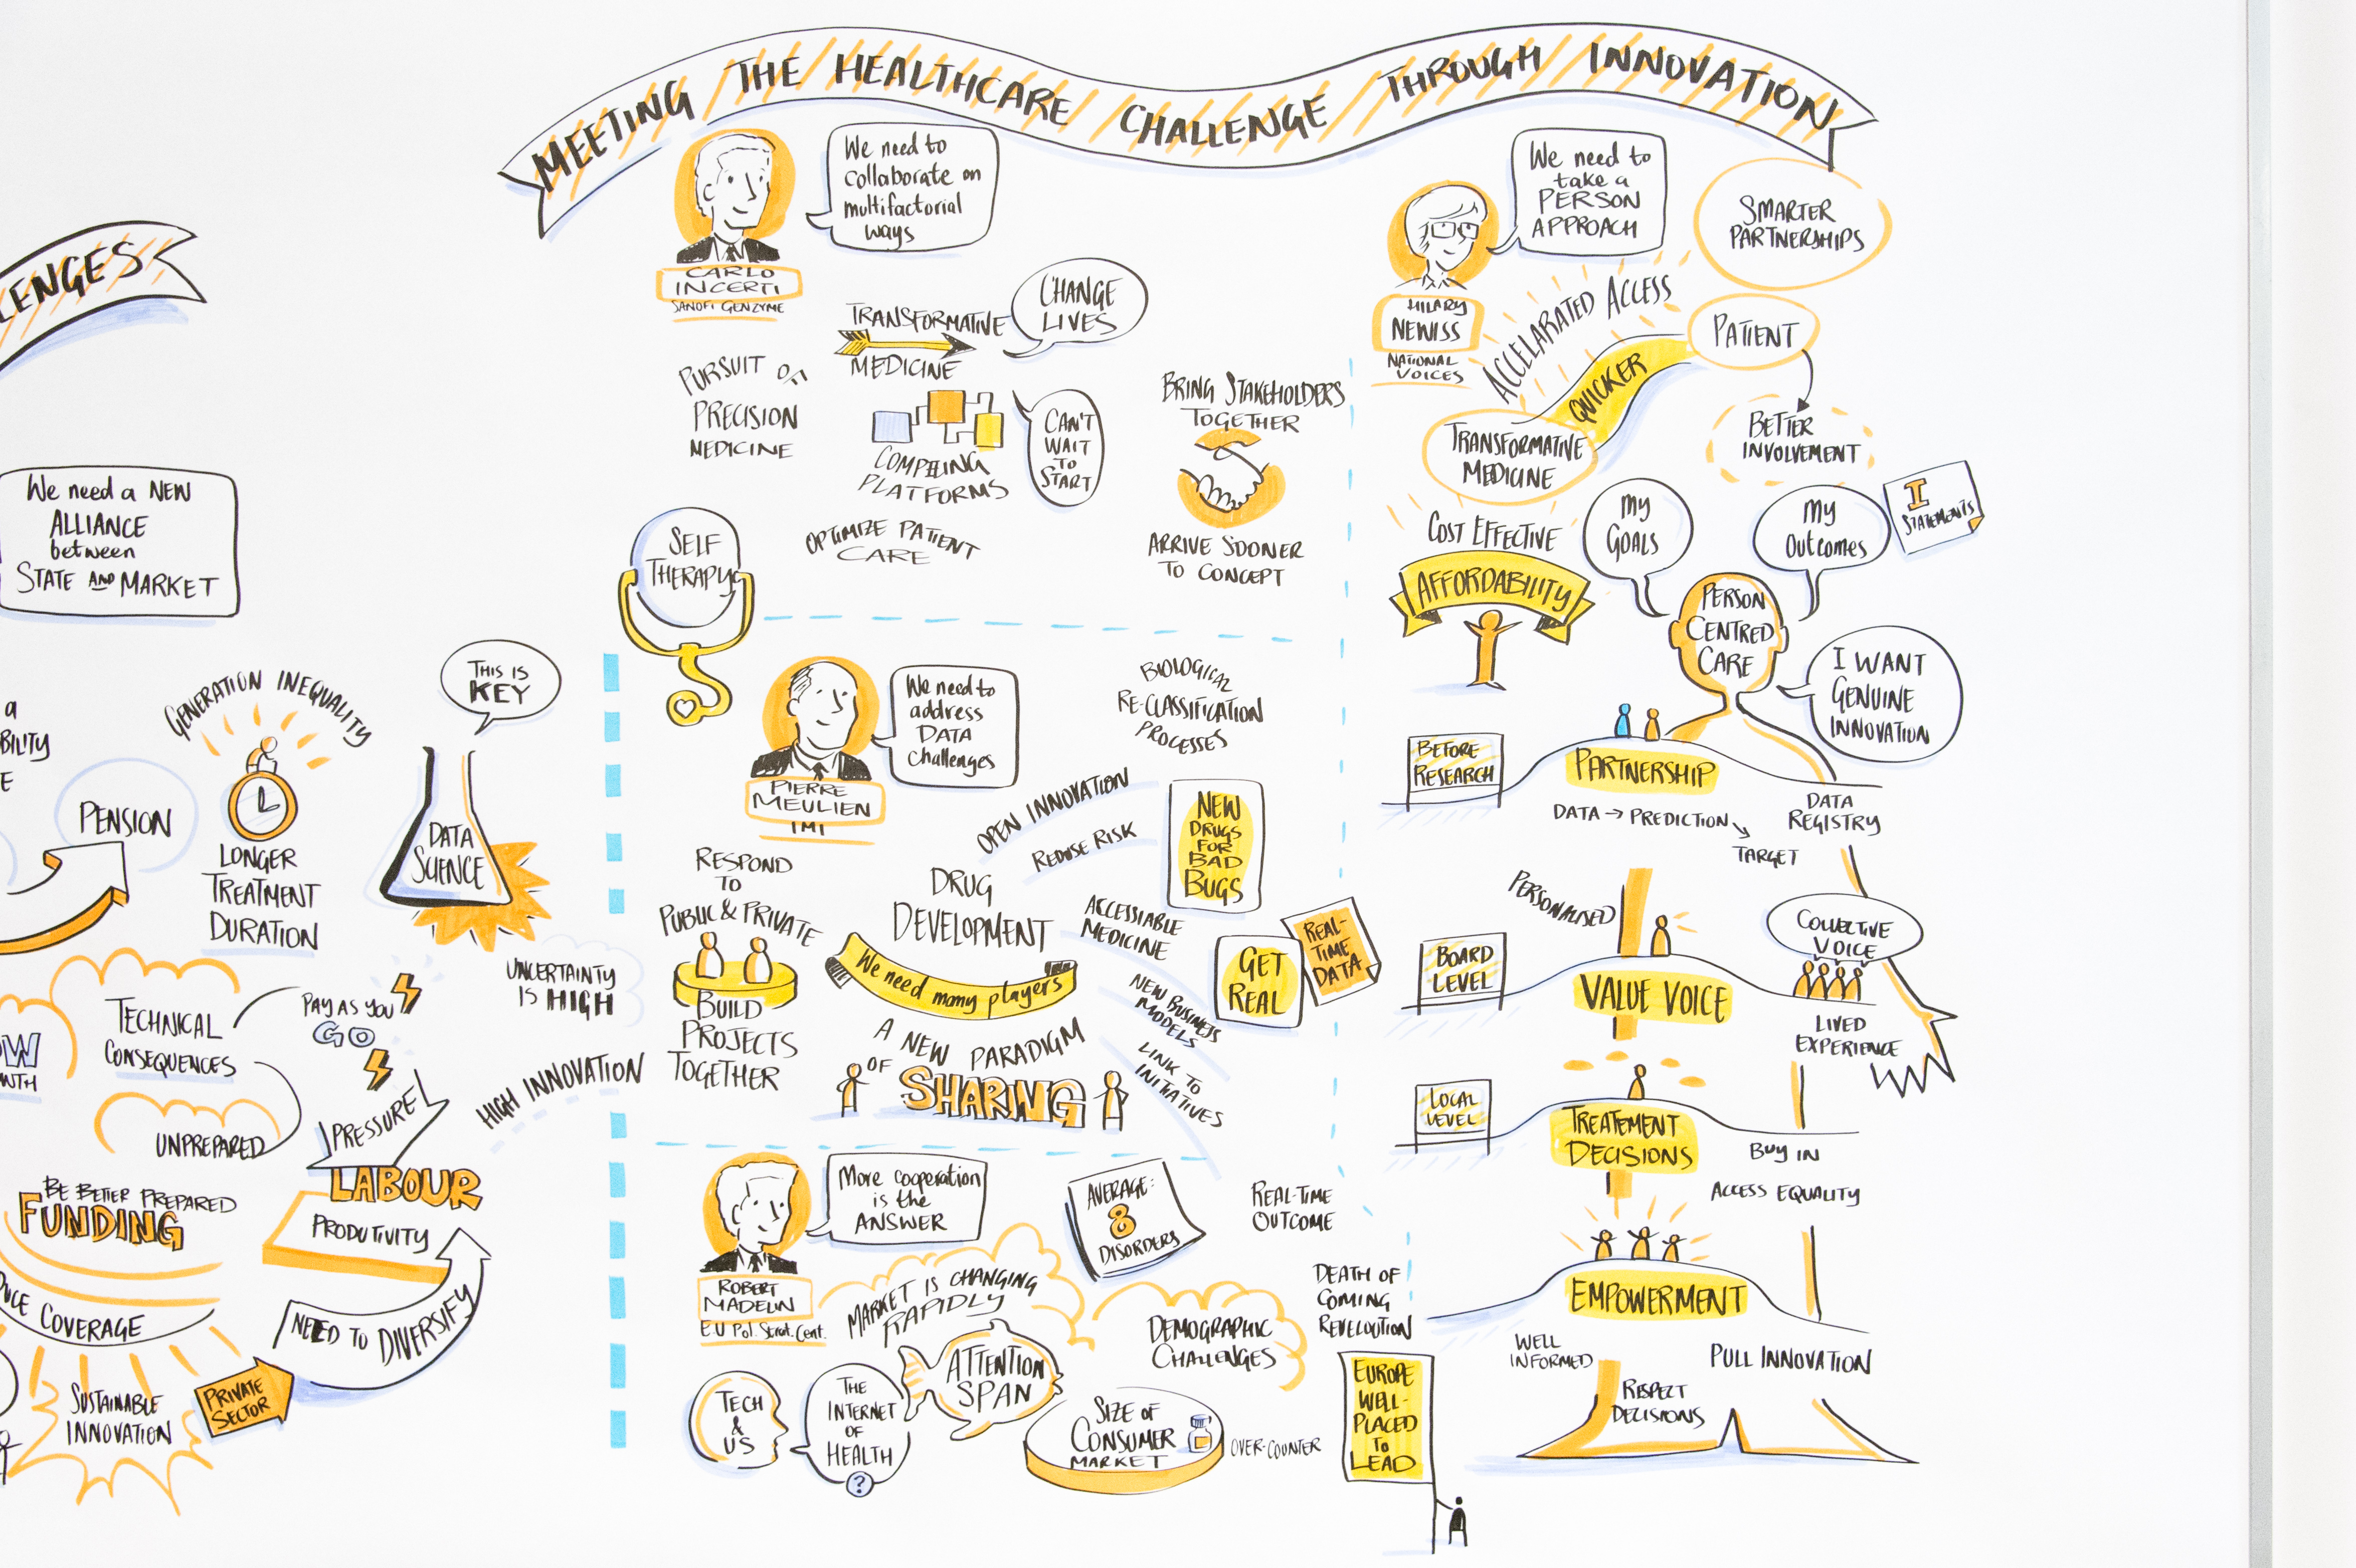 MEETING THE HEALTHCARE CHALLENGE THROUGH INNOVATION
LENGES
We need a NEW
ALLIANCE
between
STATE AND MARKET
a
BILITY
E
PENSION
GENERATION INEQUALITY
LONGER
TREATMENT
DURATION
THIS IS
KEY
DATA
SCIENCE
UNCERTAINTY
IS HIGH
HIGH INNOVATION
TECHNICAL
CONSEQUENCES
UNPREPARED
PAY AS YOU
GO
PRESSURE
OW
WTH
BE BETTER PREPARED
FUNDING
LABOUR
PRODUTIVITY
COVERAGE
NEED TO DIVERSIFY
SUSTAINABLE
INNOVATION
PRIVATE
SECTOR
CARLO
INCERTI
SANOFI GENZYME
We need to
collaborate on
multifactorial
ways
TRANSFORMATIVE
MEDICINE
CHANGE
LIVES
PURSUIT OF
PRECISION
MEDICINE
COMPELLING
PLATFORMS
CAN'T
WAIT
TO
START
OPTIMIZE PATIENT
CARE
SELF
THERAPY
BRING STAKEHOLDERS
TOGETHER
ARRIVE SOONER
TO CONCEPT
PIERRE
MEULIEN
IMI
We need to
address
DATA
challenges
BIOLOGICAL
RE-CLASSIFICATION
PROCESSES
OPEN INNOVATION
REDUSE RISK
NEW
DRUGS
FOR
BAD
BUGS
RESPOND
TO
PUBLIC & PRIVATE
BUILD
PROJECTS
TOGETHER
DRUG
DEVELOPMENT
We need many players
A NEW PARADIGM
OF
SHARING
ACCESSIABLE
MEDICINE
GET
REAL
REAL-
TIME
DATA
NEW BUSINESS
MODELS
LINK TO
INITIATIVES
ROBERT
MADELIN
EU Pol. Strat. Cent.
More cooperation
is the
ANSWER
AVERAGE:
8
DISORDERS
REAL-TIME
OUTCOME
MARKET IS CHANGING
RAPIDLY
ATTENTION
SPAN
DEMOGRAPHIC
CHALLENGES
TECH
&
US
THE
INTERNET
OF
HEALTH
?
SIZE OF
CONSUMER
MARKET
OVER-COUNTER
DEATH OF
COMING
REVELOUTION
EUROPE
WELL-
PLACED
TO
LEAD
HILARY
NEWISS
NATIONAL
VOICES
We need to
take a
PERSON
APPROACH
SMARTER
PARTNERSHIPS
ACCELARATED ACCESS
QUICKER
PATIENT
TRANSFORMATIVE
MEDICINE
BETTER
INVOLVEMENT
COST EFFECTIVE
AFFORDABILITY
My
GOALS
My
Outcomes
I
STATEMENTS
PERSON
CENTRED
CARE
I WANT
GENUINE
INNOVATION
BEFORE
RESEARCH
PARTNERSHIP
DATA → PREDICTION
TARGET
DATA
REGISTRY
PERSONALISED
BOARD
LEVEL
VALUE VOICE
COLLECTIVE
VOICE
LIVED
EXPERIENCE
LOCAL
LEVEL
TREATEMENT
DECISIONS
BUY IN
ACCESS EQUALITY
EMPOWERMENT
WELL
INFORMED
PULL INNOVATION
RESPECT
DECISIONS